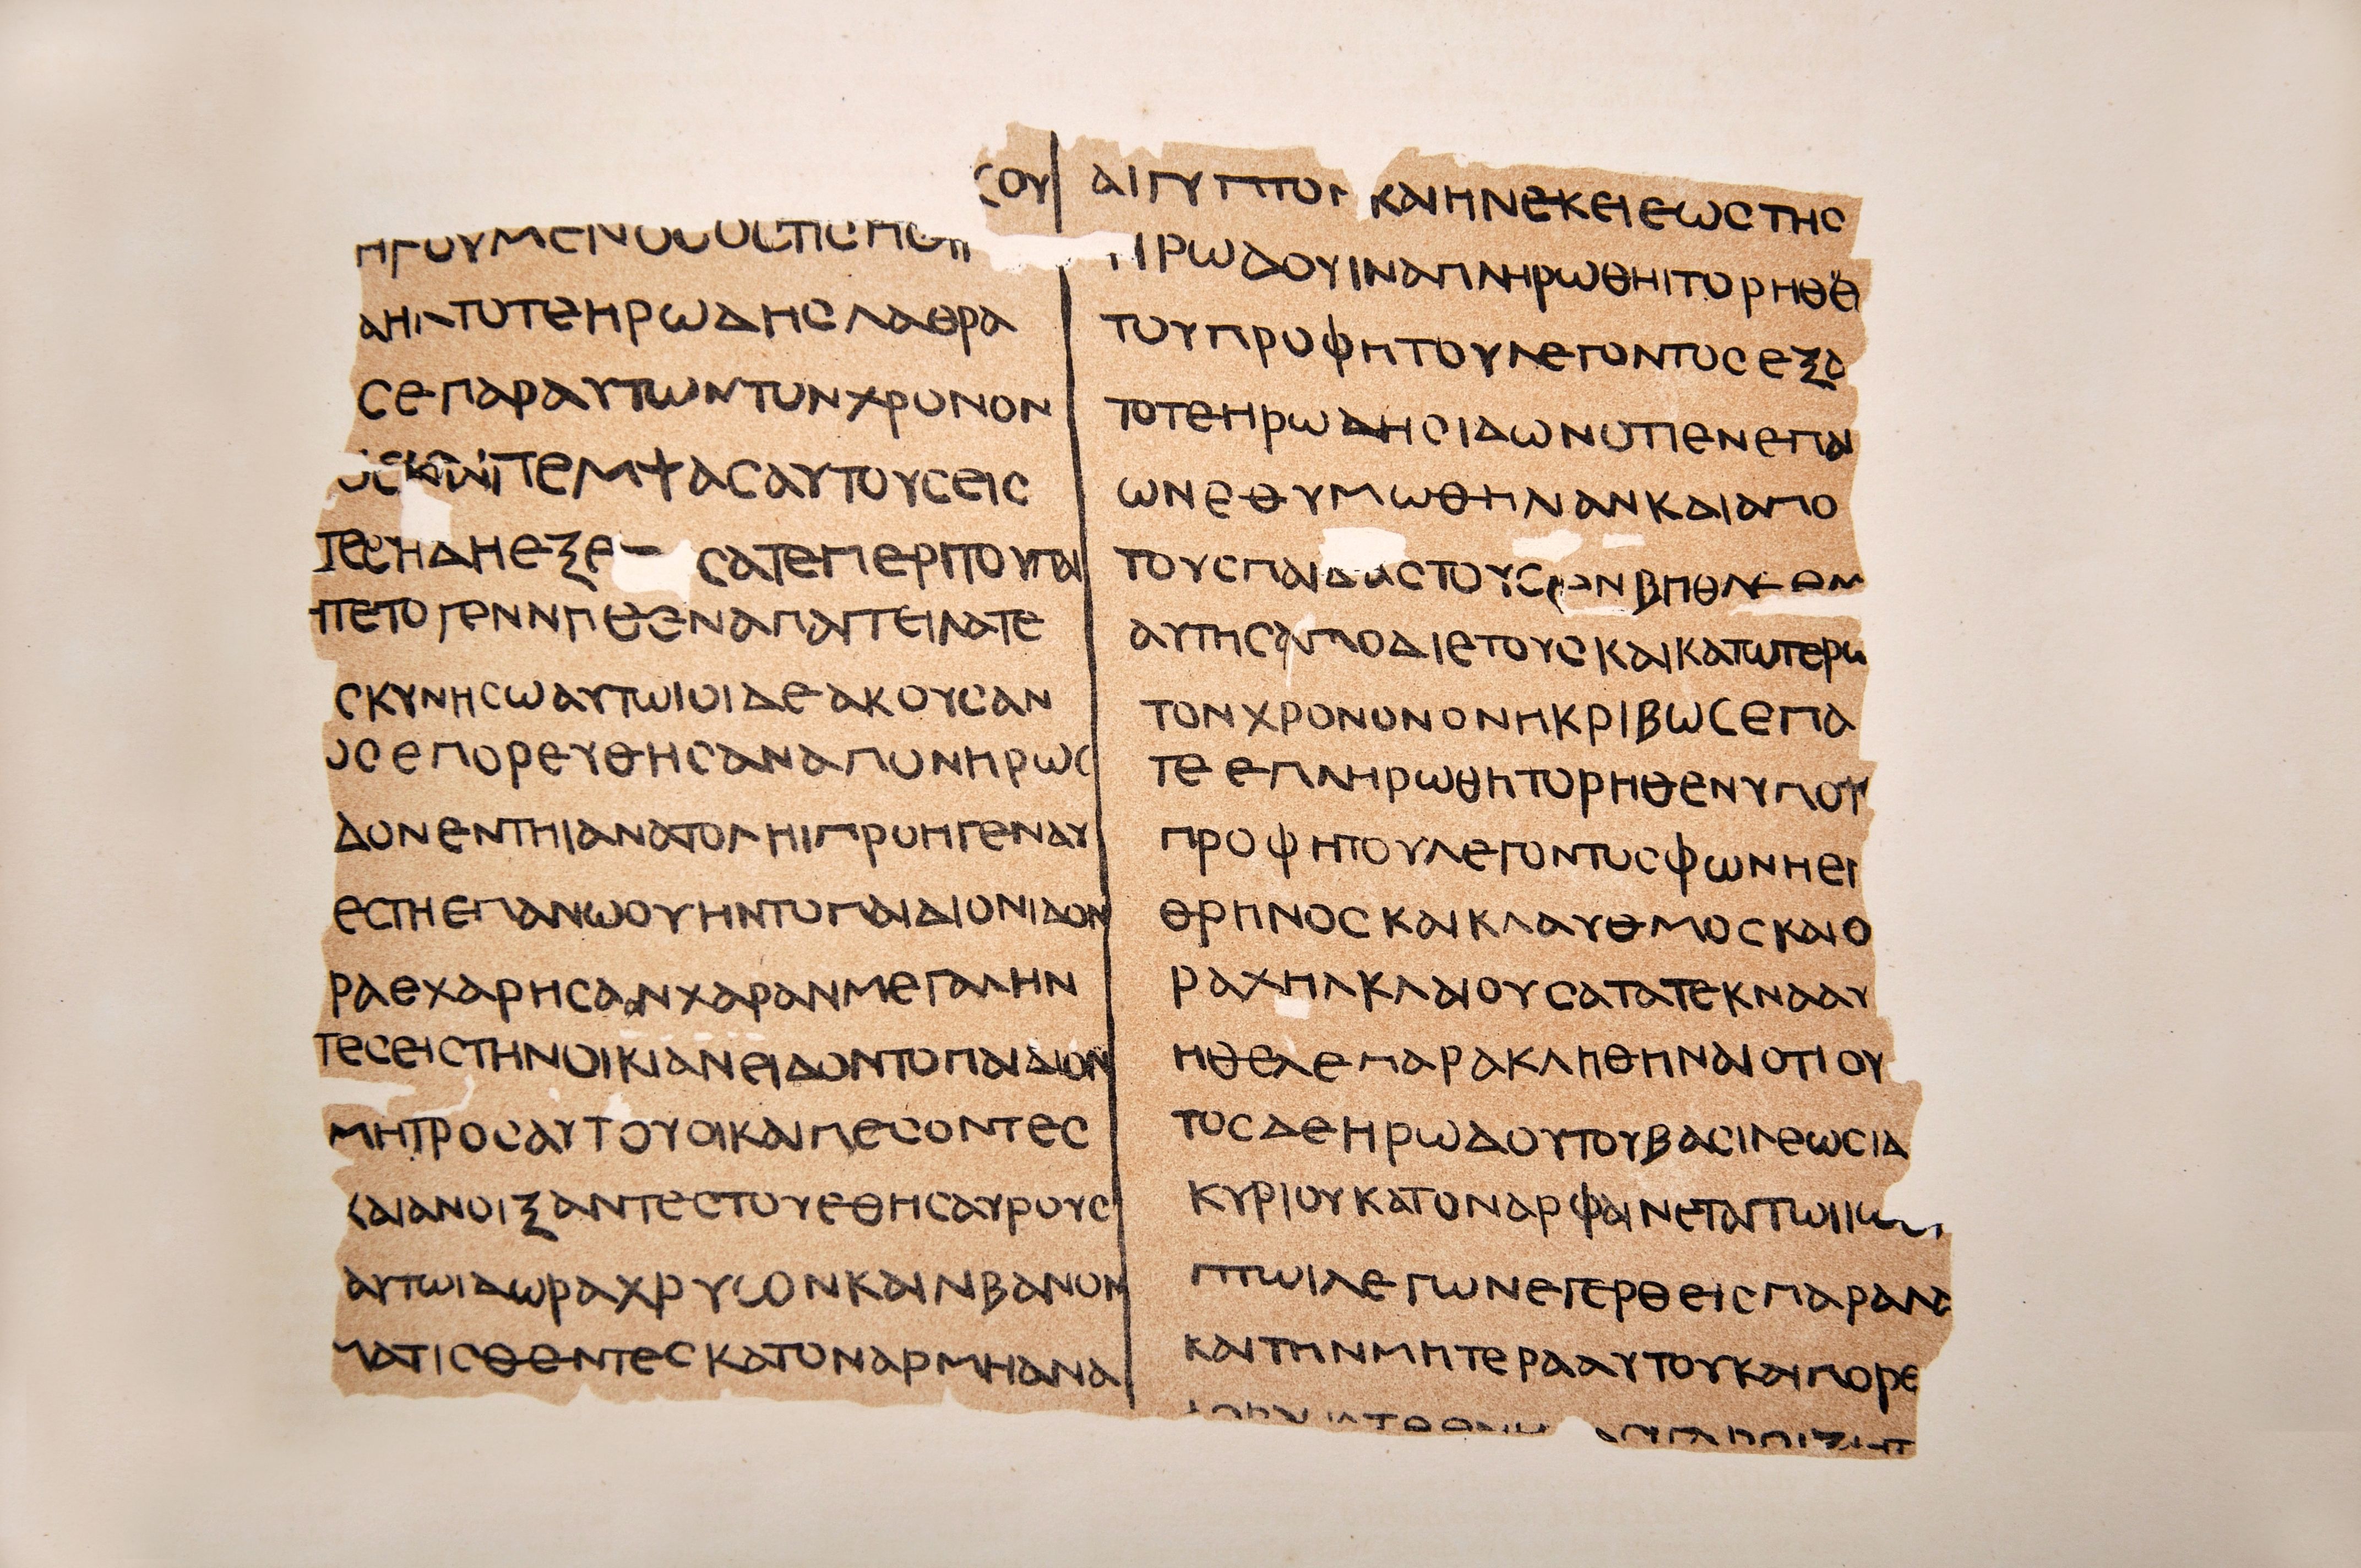 ΣΟΥ
ΗΓΟΥΜΕΝΟCΟCΤΙCΠΟΙΠ
ΑΗΛΤΟΤΕΗΡΩΔΗCΛΑΘΡΑ
CΕΠΑΡΑΥΤΩΝΤΟΝΧΡΟΝΟΝ
ΠΕΜΨΑCΑΥΤΟΥCΕΙC
CΑΤΕΠΕΡΙΤΟΥΠΑΙ
ΠΕΤΟΓΕΝΝΗΘΕΝΑΠΑΓΓΕΙΛΑΤΕ
CΚΥΝΗCΩΑΥΤΩΙΟΙΔΕΑΚΟΥCΑΝ
ΟCΕΠΟΡΕΥΘΗCΑΝΑΠΟΝΗΡΩC
ΔΟΝΕΝΤΗΙΑΝΑΤΟΛΗΙΠΡΟΗΓΕΝΑΥ
ΕCΤΗΕΠΑΝΩΟΥΗΝΤΟΠΑΙΔΙΟΝΙΔΟΝ
ΡΑΕΧΑΡΗCΑΝΧΑΡΑΝΜΕΓΑΛΗΝ
ΤΕCΕΙCΤΗΝΟΙΚΙΑΝΕΙΔΟΝΤΟΠΑΙΔΙΟΝ
ΜΗΤΡΟCΑΥΤΟΥΟΙΚΑΙΠΕCΟΝΤΕC
ΚΑΙΑΝΟΙΞΑΝΤΕCΤΟΥΕΘΗCΑΥΡΟΥC
ΑΥΤΩΙΔΩΡΑΧΡΥCΟΝΚΑΙΛΙΒΑΝΟΝ
ΜΑΤΙCΘΕΝΤΕCΚΑΤΟΝΑΡΜΗΑΝΑ
ΑΙΓΥΠΤΟΝ ΚΑΙΗΝΕΚΕΙΕΩCΤΗC
ΗΡΩΔΟΥΙΝΑΠΛΗΡΩΘΗΙΤΟΡΗΘΕ
ΤΟΥΠΡΟΦΗΤΟΥΛΕΓΟΝΤΟCΕΞΑ
ΤΟΤΕΗΡΩΔΗCΙΔΩΝΟΤΙΕΝΕΠΑΙ
ΩΝΕΘΥΜΩΘΗΛΙΑΝΚΑΙΑΠΟ
ΤΟΥCΠΑΙΔΑCΤΟΥCΕΝΒΗΘΛΕΕΜ
ΑΥΤΗCΑΠΟΔΙΕΤΟΥCΚΑΙΚΑΤΩΤΕΡΩ
ΤΟΝΧΡΟΝΟΝΟΝΗΚΡΙΒΩCΕΠΑ
ΤΕΕΠΛΗΡΩΘΗΤΟΡΗΘΕΝΥΠΟΥ
ΠΡΟΦΗΤΟΥΛΕΓΟΝΤΟCΦΩΝΗΕΓ
ΘΡΗΝΟCΚΑΙΚΛΑΥΘΜΟCΚΑΙΟ
ΡΑΧΗΛΚΛΑΙΟΥCΑΤΑΤΕΚΝΑΑΥ
ΗΘΕΛΕΠΑΡΑΚΛΗΘΗΝΑΙΟΤΙΟΥ
ΤΟCΔΕΗΡΩΔΟΥΤΟΥΒΑCΙΛΕΩCΙΔ
ΚΥΡΙΟΥΚΑΤΟΝΑΡΦΑΙΝΕΤΑΙΤΩΙΙΩ
ΠΤΩΙΛΕΓΩΝΕΓΕΡΘΕΙCΠΑΡΑΛΑ
ΚΑΙΤΗΝΜΗΤΕΡΑΑΥΤΟΥΚΑΙΠΟΡΕ